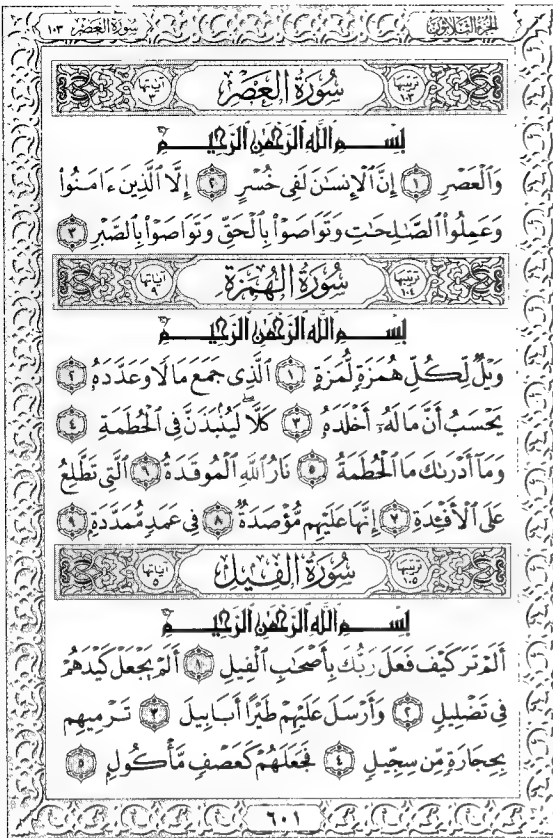 الجزء الثلاثون سورة العصر ١٠٣
ترتيبها ١٠٣ سورة العصر آياتها ٣
بِسْمِ ٱللَّهِ ٱلرَّحْمَٰنِ ٱلرَّحِيمِ
وَٱلْعَصْرِ ١ إِنَّ ٱلْإِنسَٰنَ لَفِى خُسْرٍ ٢ إِلَّا ٱلَّذِينَ ءَامَنُوا۟
وَعَمِلُوا۟ ٱلصَّٰلِحَٰتِ وَتَوَاصَوْا۟ بِٱلْحَقِّ وَتَوَاصَوْا۟ بِٱلصَّبْرِ ٣
ترتيبها ١٠٤ سُورَةُ الهُمَزَةِ آياتها ٩
بِسْمِ ٱللَّهِ ٱلرَّحْمَٰنِ ٱلرَّحِيمِ
وَيْلٌ لِّكُلِّ هُمَزَةٍ لُّمَزَةٍ ١ ٱلَّذِى جَمَعَ مَالًا وَعَدَّدَهُۥ ٢
يَحْسَبُ أَنَّ مَالَهُۥٓ أَخْلَدَهُۥ ٣ كَلَّا ۖ لَيُنۢبَذَنَّ فِى ٱلْحُطَمَةِ ٤
وَمَآ أَدْرَىٰكَ مَا ٱلْحُطَمَةُ ٥ نَارُ ٱللَّهِ ٱلْمُوقَدَةُ ٦ ٱلَّتِى تَطَّلِعُ
عَلَى ٱلْأَفْـِٔدَةِ ٧ إِنَّهَا عَلَيْهِم مُّؤْصَدَةٌ ٨ فِى عَمَدٍ مُّمَدَّدَةٍۭ ٩
ترتيبها ١٠٥ سُورَةُ الفِيلِ آياتها ٥
بِسْمِ ٱللَّهِ ٱلرَّحْمَٰنِ ٱلرَّحِيمِ
أَلَمْ تَرَ كَيْفَ فَعَلَ رَبُّكَ بِأَصْحَٰبِ ٱلْفِيلِ ١ أَلَمْ يَجْعَلْ كَيْدَهُمْ
فِى تَضْلِيلٍ ٢ وَأَرْسَلَ عَلَيْهِمْ طَيْرًا أَبَابِيلَ ٣ تَرْمِيهِم
بِحِجَارَةٍ مِّن سِجِّيلٍ ٤ فَجَعَلَهُمْ كَعَصْفٍ مَّأْكُولٍۭ ٥
٦٠١